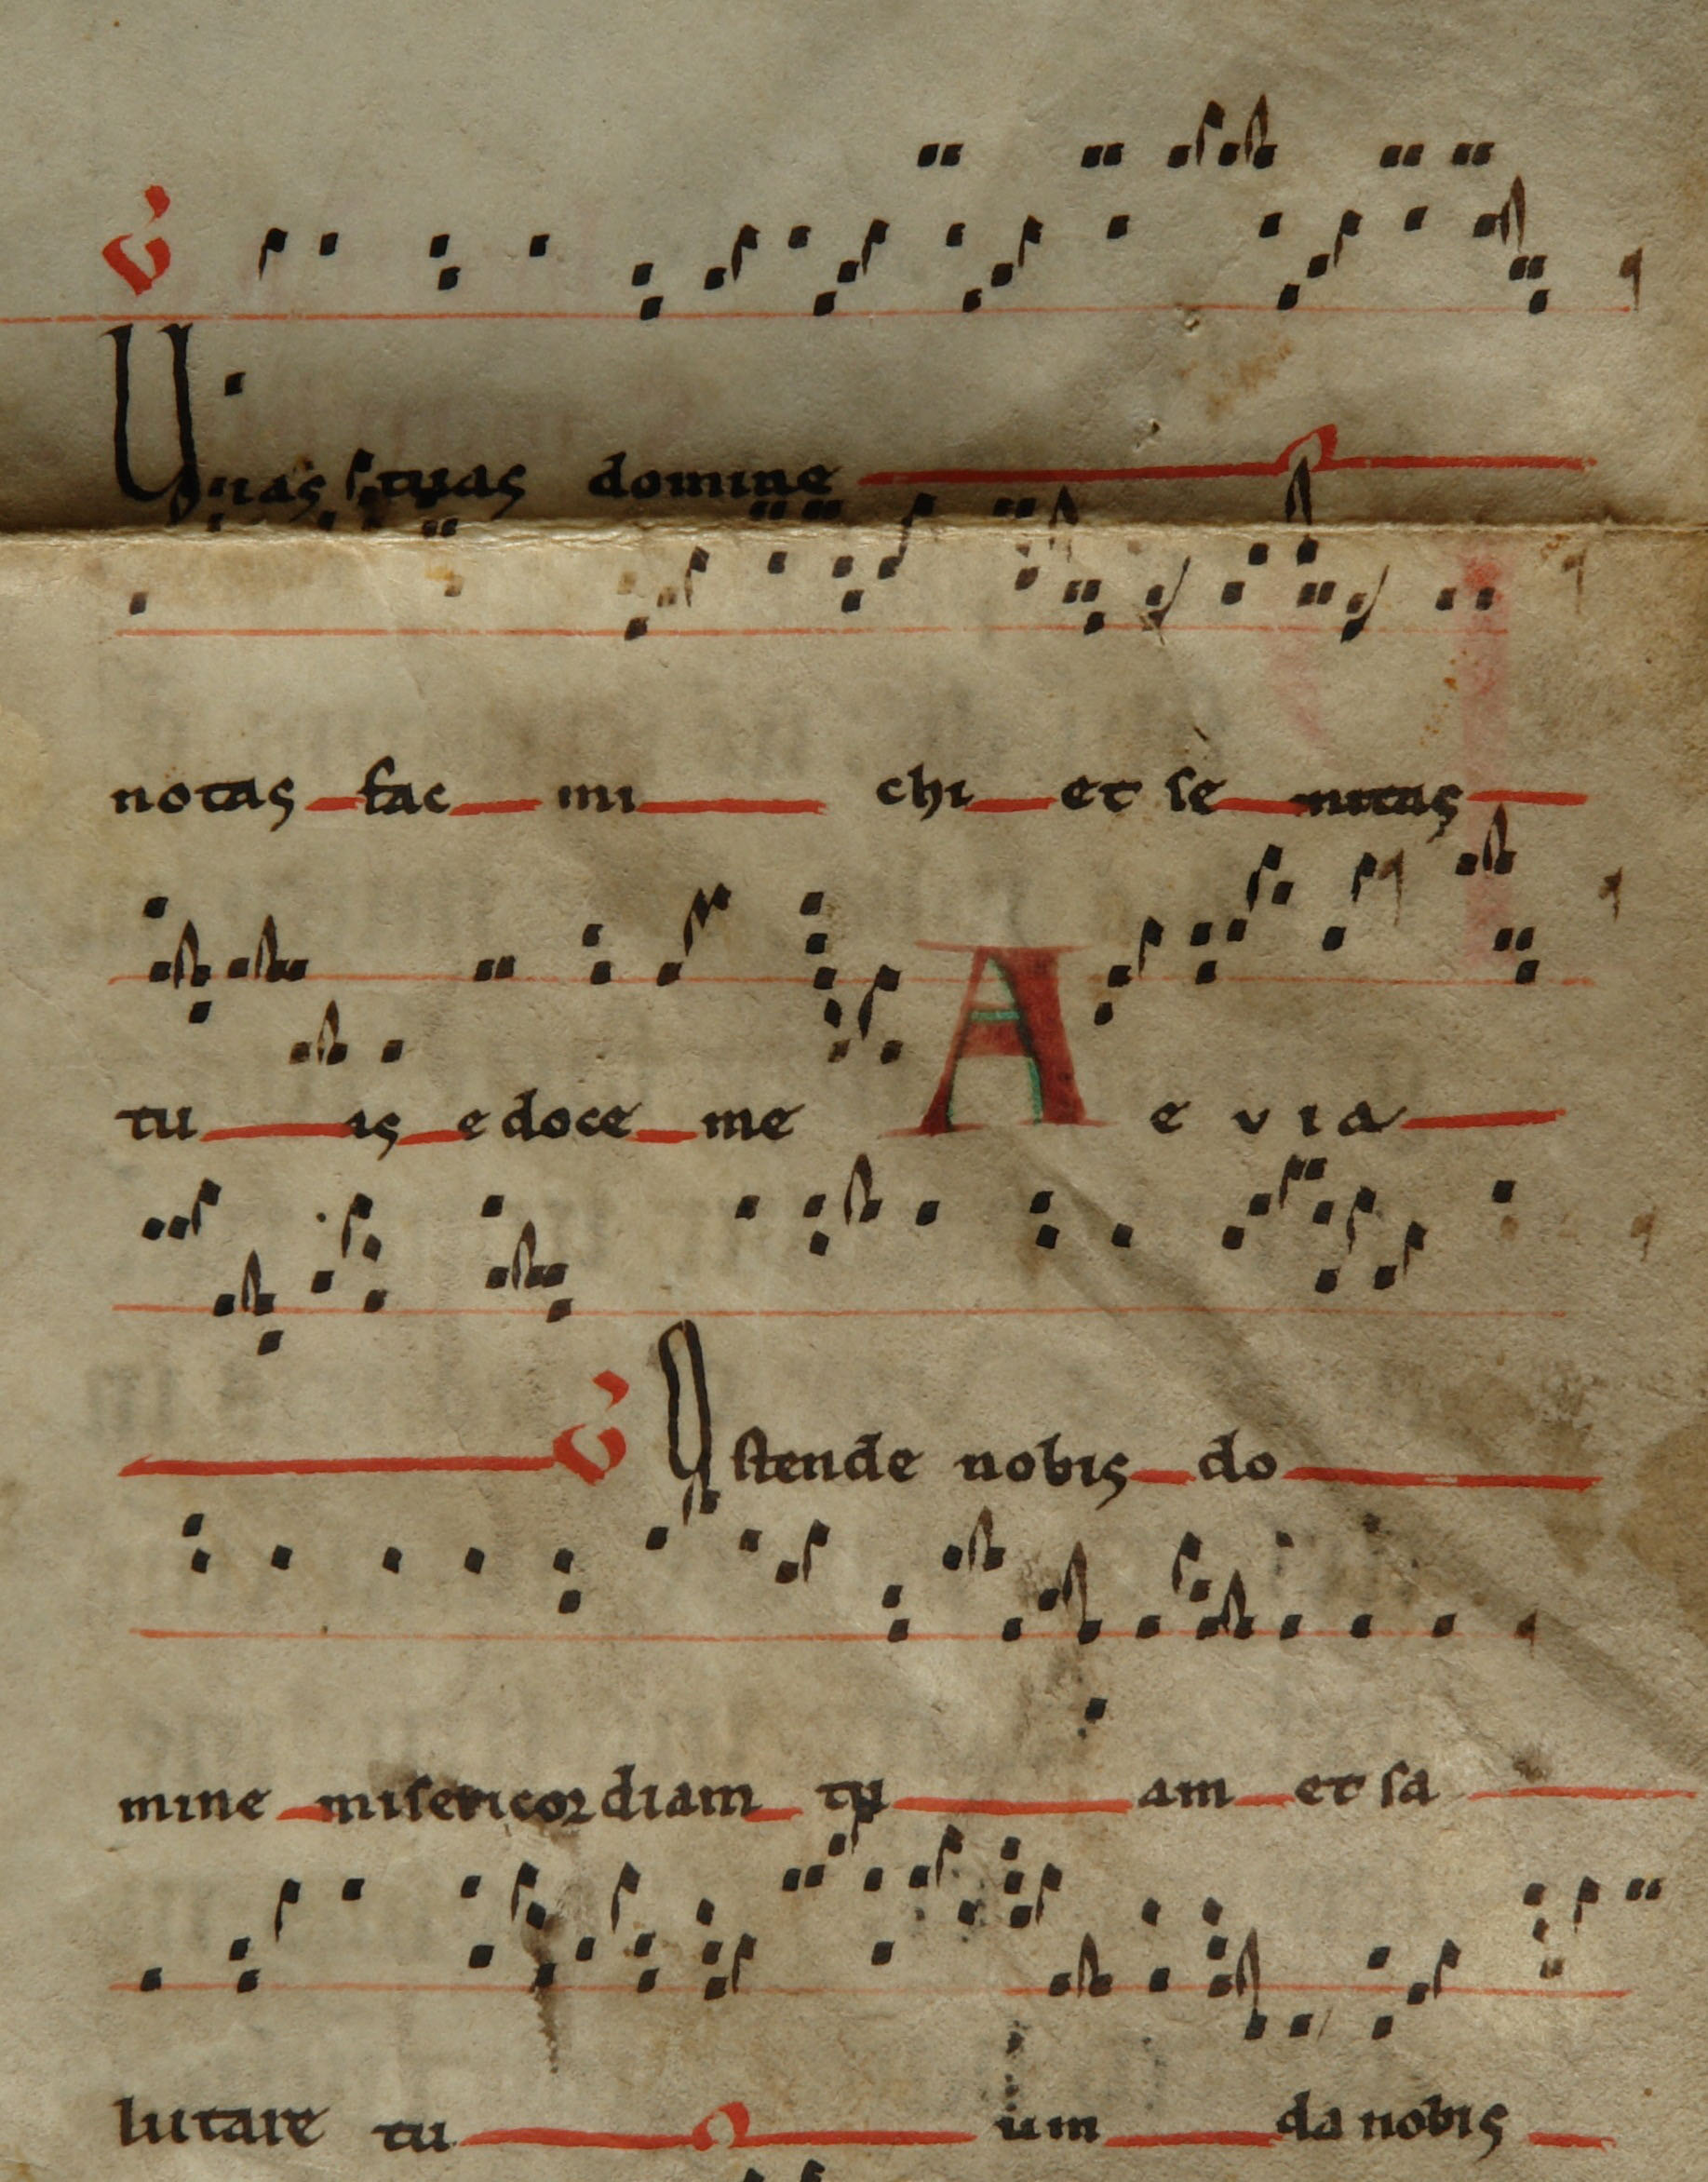 V Uias tuas domine
notas fac mi chi et se mitas
tu as edoce me A e v i a
V Ostende nobis do
mine misericordiam tu am et sa
lutare tu um da nobis